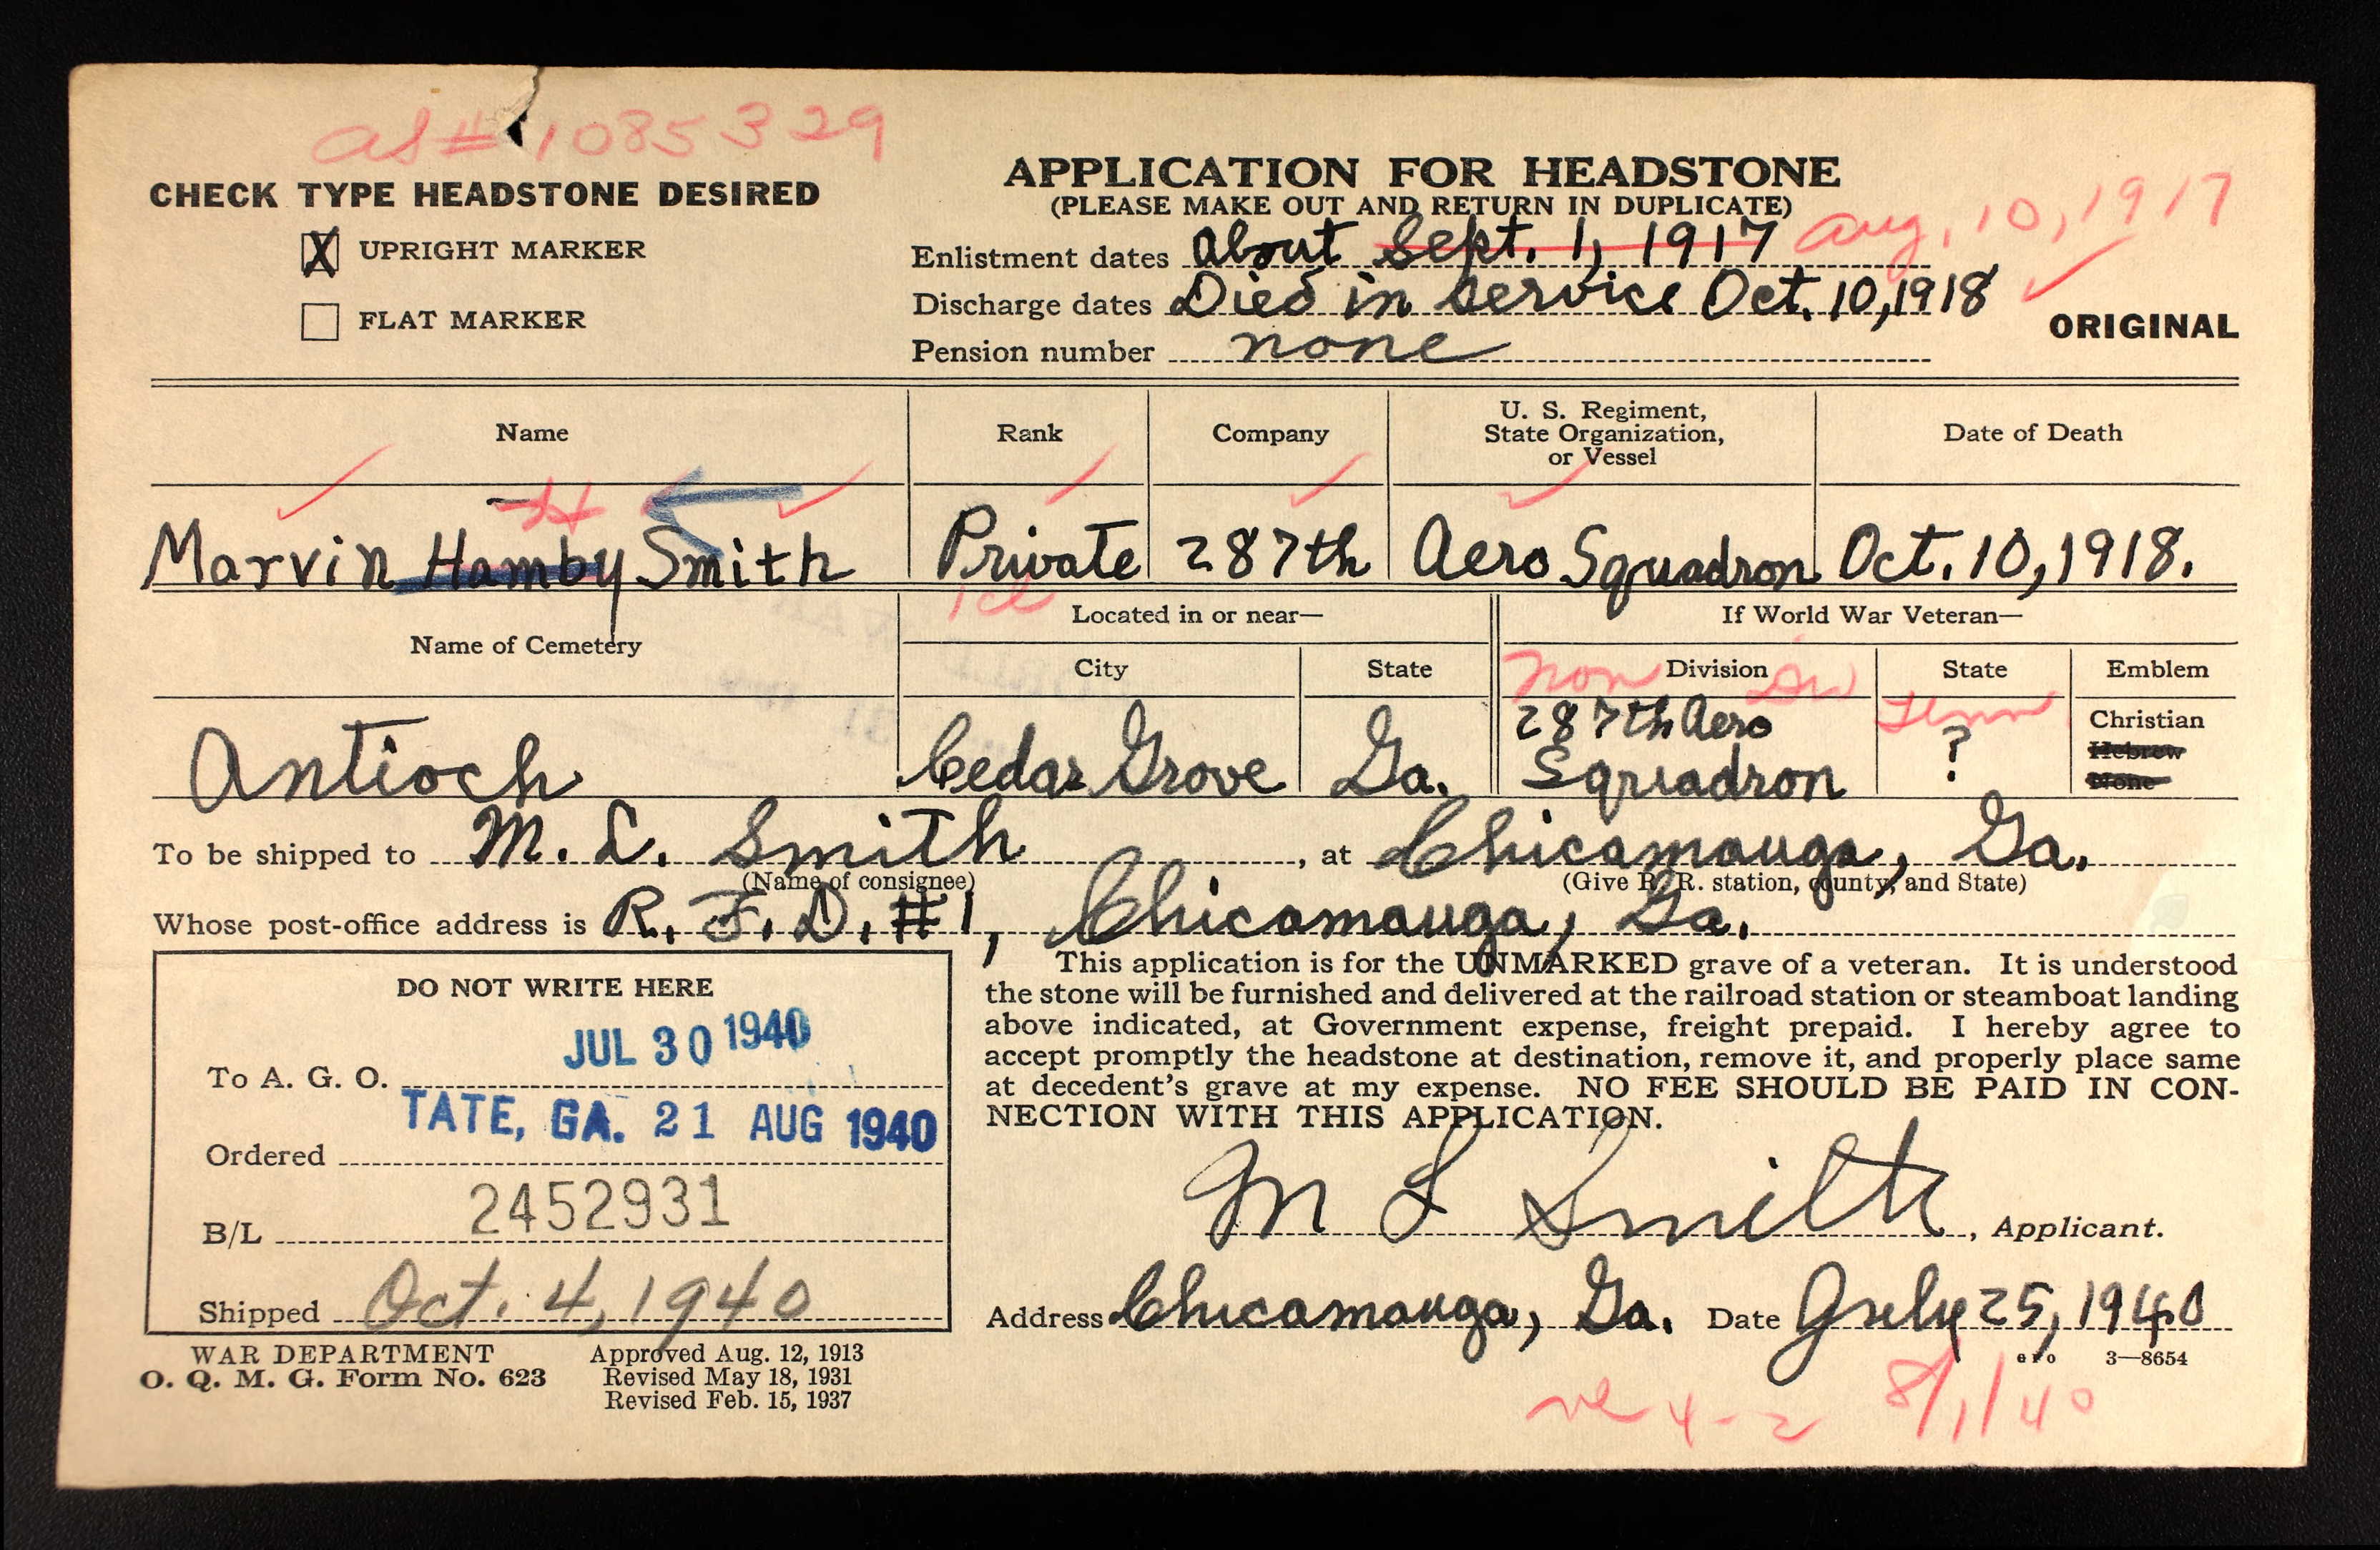 as # 1085329
CHECK TYPE HEADSTONE DESIRED
X UPRIGHT MARKER
FLAT MARKER
APPLICATION FOR HEADSTONE
(PLEASE MAKE OUT AND RETURN IN DUPLICATE)
Enlistment dates About Sept. 1, 1917 Aug. 10, 1917
Discharge dates Died in service Oct. 10, 1918
Pension number none
ORIGINAL
Name Rank Company U. S. Regiment, State Organization, or Vessel Date of Death
H
Marvin Hamby Smith Private 287th Aero Squadron Oct. 10, 1918.
1cl
Name of Cemetery Located in or near— If World War Veteran—
City State Division State Emblem
non Tenn
Antioch Cedar Grove Ga. 287th Aero Squadron ? Christian
Hebrew
None
To be shipped to M. L. Smith, at Chicamauga, Ga.
(Name of consignee) (Give R. R. station, county, and State)
Whose post-office address is R. F. D. #1, Chicamauga, Ga.
DO NOT WRITE HERE
To A. G. O. JUL 30 1940
Ordered TATE, GA. 21 AUG 1940
B/L 2452931
Shipped Oct. 4, 1940
This application is for the UNMARKED grave of a veteran. It is understood
the stone will be furnished and delivered at the railroad station or steamboat landing
above indicated, at Government expense, freight prepaid. I hereby agree to
accept promptly the headstone at destination, remove it, and properly place same
at decedent's grave at my expense. NO FEE SHOULD BE PAID IN CON-
NECTION WITH THIS APPLICATION.
M L Smith, Applicant.
Address Chicamauga, Ga. Date July 25, 1940
WAR DEPARTMENT
O. Q. M. G. Form No. 623
Approved Aug. 12, 1913
Revised May 18, 1931
Revised Feb. 15, 1937
3—8654
4-2 8/1/40